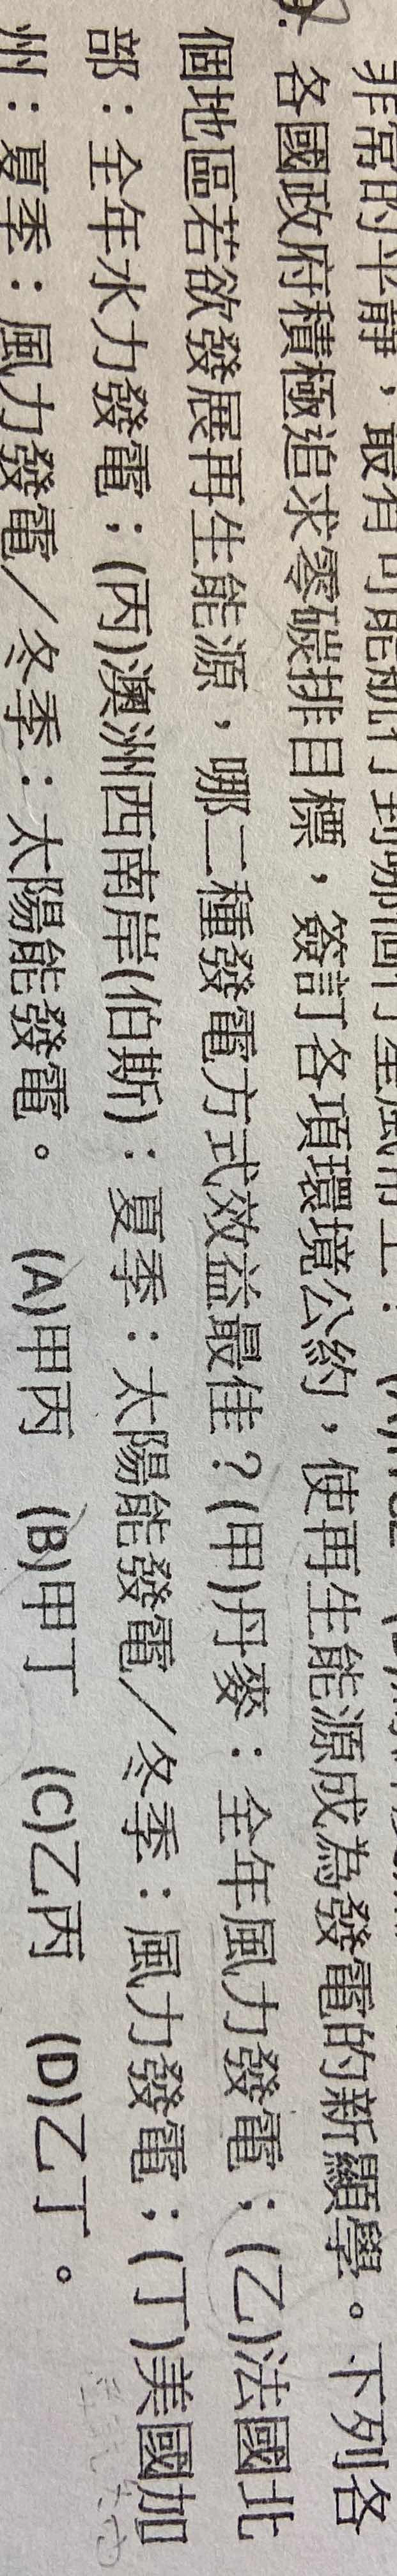 非常的平靜，最有可能航行到哪個行星風帶上？(A)
各國政府積極追求零碳排目標，簽訂各項環境公約，使再生能源成為發電的新顯學。下列各
個地區若欲發展再生能源，哪二種發電方式效益最佳？(甲)丹麥：全年風力發電；(乙)法國北
部：全年水力發電；(丙)澳洲西南岸(伯斯)：夏季：太陽能發電／冬季：風力發電；(丁)美國加
州：夏季：風力發電／冬季：太陽能發電。 (A)甲丙 (B)甲丁 (C)乙丙 (D)乙丁。